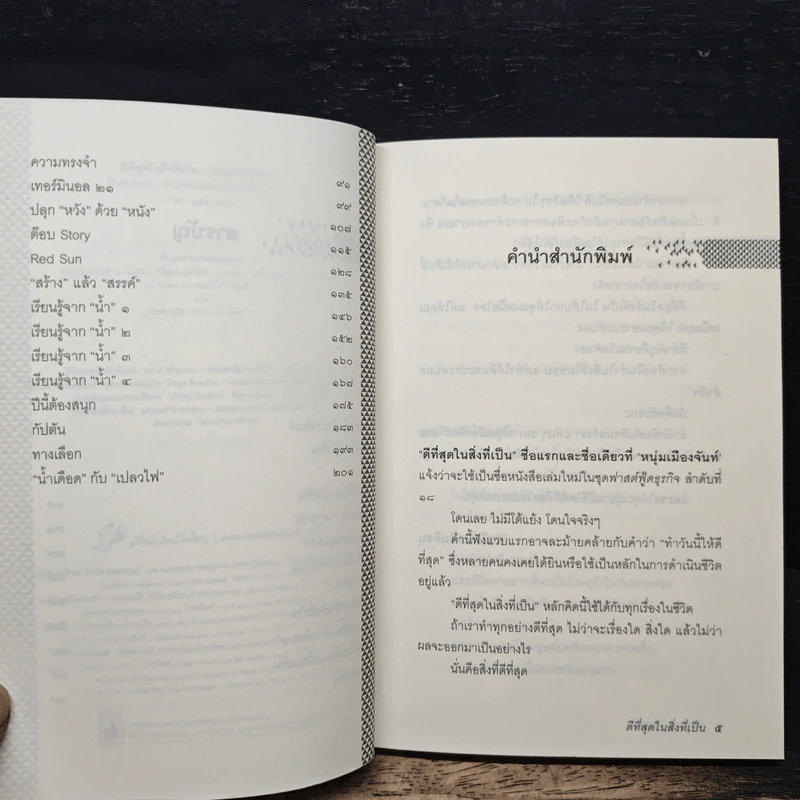 ความทรงจำ ๙๑
เทอร์มินอล ๒๑ ๙๙
ปลุก "หวัง" ด้วย "หนัง" ๑๐๗
ต๊อบ Story ๑๑๕
Red Sun ๑๒๘
"สร้าง" แล้ว "สรรค์" ๑๓๕
เรียนรู้จาก "น้ำ" ๑ ๑๔๖
เรียนรู้จาก "น้ำ" ๒ ๑๕๒
เรียนรู้จาก "น้ำ" ๓ ๑๖๐
เรียนรู้จาก "น้ำ" ๔ ๑๖๗
ปีนี้ต้องสนุก ๑๗๕
กัปตัน ๑๘๓
ทางเลือก ๑๙๓
"น้ำเดือด" กับ "เปลวไฟ" ๒๐๑
คำนำสำนักพิมพ์
"ดีที่สุดในสิ่งที่เป็น" ชื่อแรกและชื่อเดียวที่ 'หนุ่มเมืองจันท์'
แจ้งว่าจะใช้เป็นชื่อหนังสือเล่มใหม่ในชุดฟาสต์ฟู้ดธุรกิจ ลำดับที่
๑๘
โดนเลย ไม่มีโต้แย้ง โดนใจจริงๆ
คำนี้ฟังแวบแรกอาจละม้ายคล้ายกับคำว่า "ทำวันนี้ให้ดี
ที่สุด" ซึ่งหลายคนคงเคยได้ยินหรือใช้เป็นหลักในการดำเนินชีวิต
อยู่แล้ว
"ดีที่สุดในสิ่งที่เป็น" หลักคิดนี้ใช้ได้กับทุกเรื่องในชีวิต
ถ้าเราทำทุกอย่างดีที่สุด ไม่ว่าจะเรื่องใด สิ่งใด แล้วไม่ว่า
ผลจะออกมาเป็นอย่างไร
นั่นคือสิ่งที่ดีที่สุด
ดีที่สุดในสิ่งที่เป็น ๕